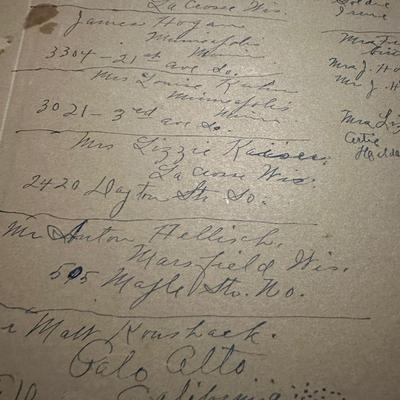 La Crosse Wis.
James Hogan
Minneapolis
Minn
3304 - 21st ave So.
Mrs Louise Kuhn
Minneapolis
Minn
3021 - 3rd ave So.
Mrs Lizzie Kaiser
La Crosse Wis.
2420 Dayton Str So.
Mr Anton Hellisch.
Marsfield Wis.
505 Maple Str. No.
Matt Koushack.
Palo Alto
California
Goldie
Irene
Mrs
Mrs J. Ho
Mr J. H
Mrs Liz
Artie